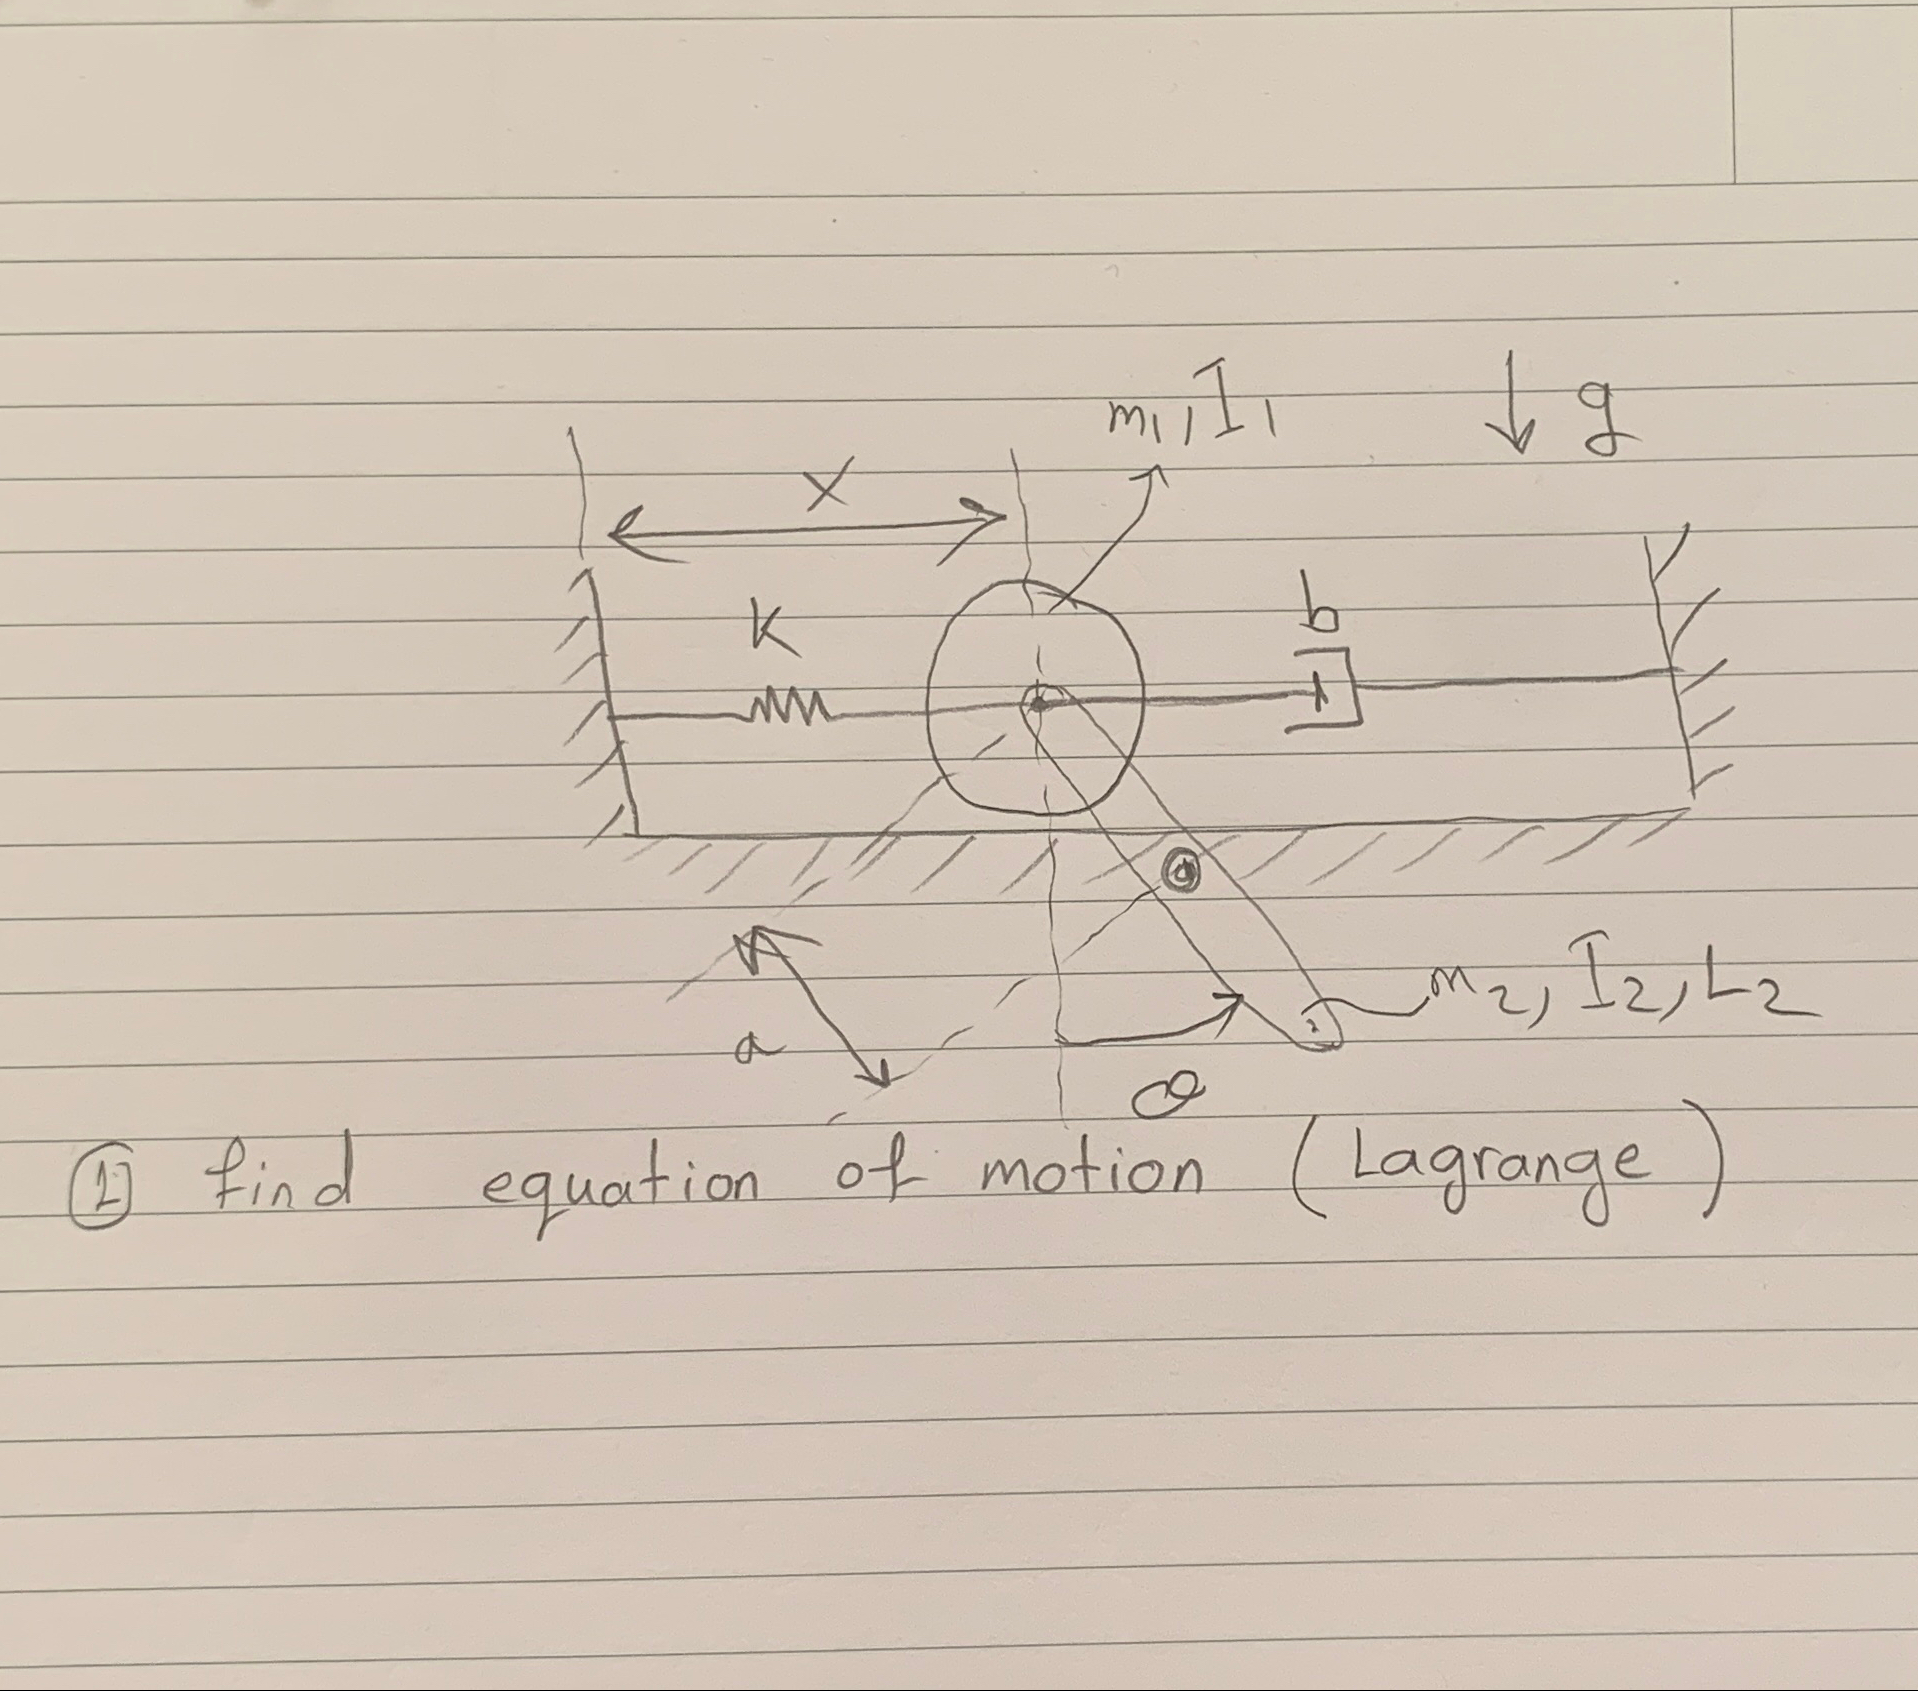 m1, I1
g
x
K
b
m2, I2, L2
a
θ
① find equation of motion (Lagrange)